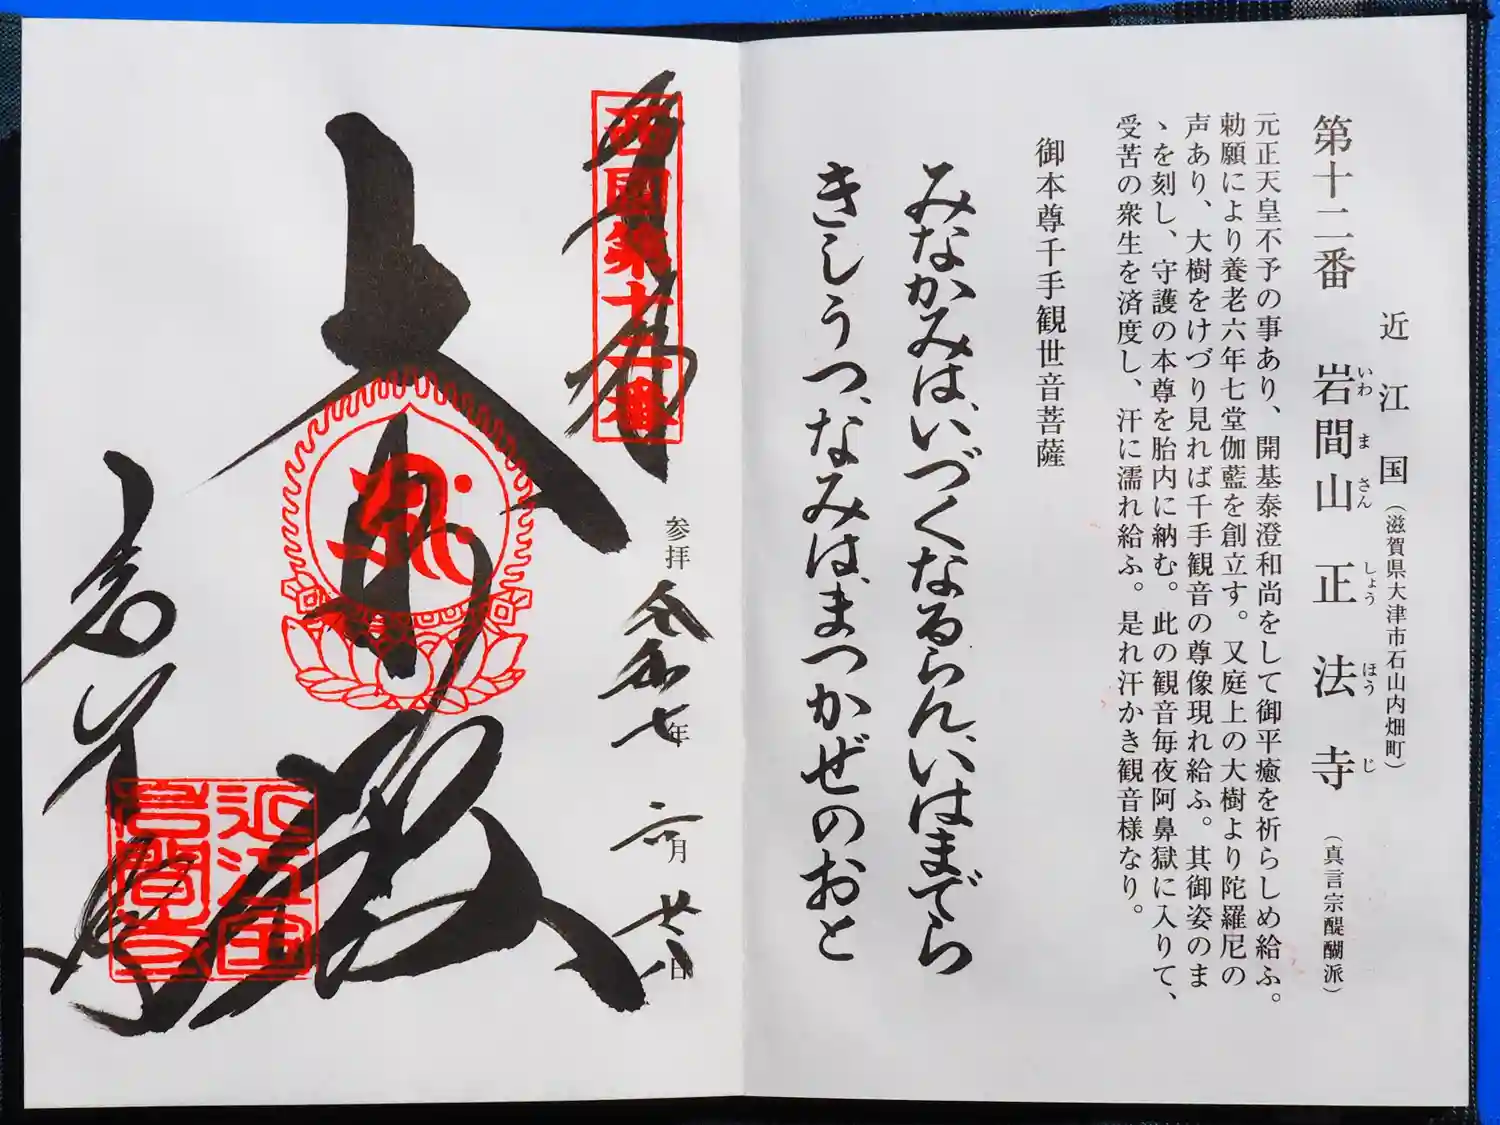 近江国(滋賀県大津市石山内畑町)
第十二番 岩間山 正法寺 (真言宗醍醐派)
いわ ま さん しょう ほう じ
元正天皇不予の事あり、開基泰澄和尚をして御平癒を祈らしめ給ふ。
勅願により養老六年七堂伽藍を創立す。又庭上の大樹より陀羅尼の
声あり、大樹をけづり見れば千手観音の尊像現れ給ふ。其御姿のま
ゝを刻し、守護の本尊を胎内に納む。此の観音毎夜阿鼻獄に入りて、
受苦の衆生を済度し、汗に濡れ給ふ。是れ汗かき観音様なり。
御本尊千手観世音菩薩
みなかみは、いづくなるらん、いはまでら
きしうつ、なみは、まつかぜのおと
奉拝
西國第十二番
参拝 令和七年 六月 廿八日
大悲殿
岩間寺
近江国
岩間寺